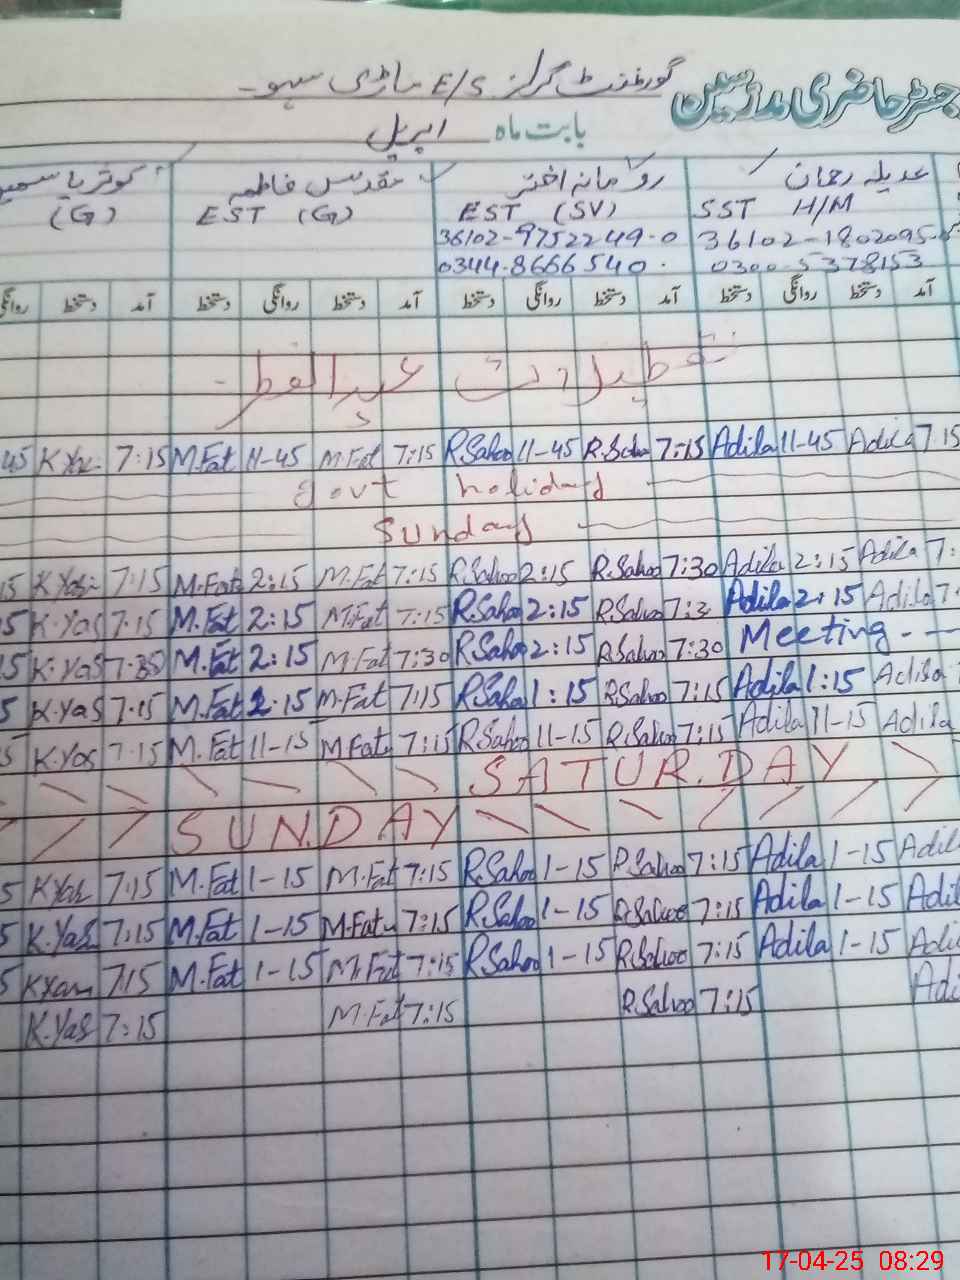 رجسٹر حاضری مدرسین گورنمنٹ گرلز E/S ماڑی سہو۔
بابت ماہ اپریل
عدیلہ رحمان رومانہ اختر مقدس فاطمہ کوثر یاسمین
SST H/M EST (SV) EST (G) (G)
36102-1802095 36102-9752249-0
0300-5378153 0344-8666540
آمد دستخط روانگی دستخط آمد دستخط روانگی دستخط آمد دستخط روانگی دستخط آمد دستخط روانگی
تعطیلات عیدالفطر -
45 K Yas 7:15 M.Fat 11-45 M.Fat 7:15 R.Sahoo 11-45 R.Sahoo 7:15 Adila 11-45 Adila 7:15
govt holiday
Sunday
15 K Yas 7:15 M.Fat 2:15 M.Fat 7:15 R.Sahoo 2:15 R.Sahoo 7:30 Adila 2:15 Adila 7:
5 K.Yas 7:15 M.Fat 2:15 M.Fat 7:15 R.Sahoo 2:15 R.Sahoo 7:3 Adila 2:15 Adila 7
15 K.Yas M.Fat 2:15 M.Fat 7:30 R.Sahoo 2:15 R.Sahoo 7:30 Meeting - —
5 K.Yas 7:15 M.Fat 2:15 M.Fat 7:15 R.Saha 1:15 R.Sahoo 7:15 Adila 1:15 Adila
5 K.Yas 7:15 M.Fat 11-15 M.Fat 7:15 R.Sahoo 11-15 R.Sahoo 7:15 Adila 11-15 Adila
SATUR.DAY
SUN.DAY
5 K.Yas 7:15 M.Fat 1-15 M.Fat 7:15 R.Sahoo 1-15 R.Sahoo 7:15 Adila 1-15 Adil
5 K.Yas 7:15 M.Fat 1-15 M.Fat 7:15 R.Sahoo 1-15 R.Sahoo 7:15 Adila 1-15 Adil
5 7:15 M.Fat 1-15 M.Fat 7:15 R.Sahoo 1-15 R.Sahoo 7:15 Adila 1-15 Adil
K.Yas 7:15 M.Fat 7:15 R.Sahoo 7:15 Adi
17-04-25 08:29